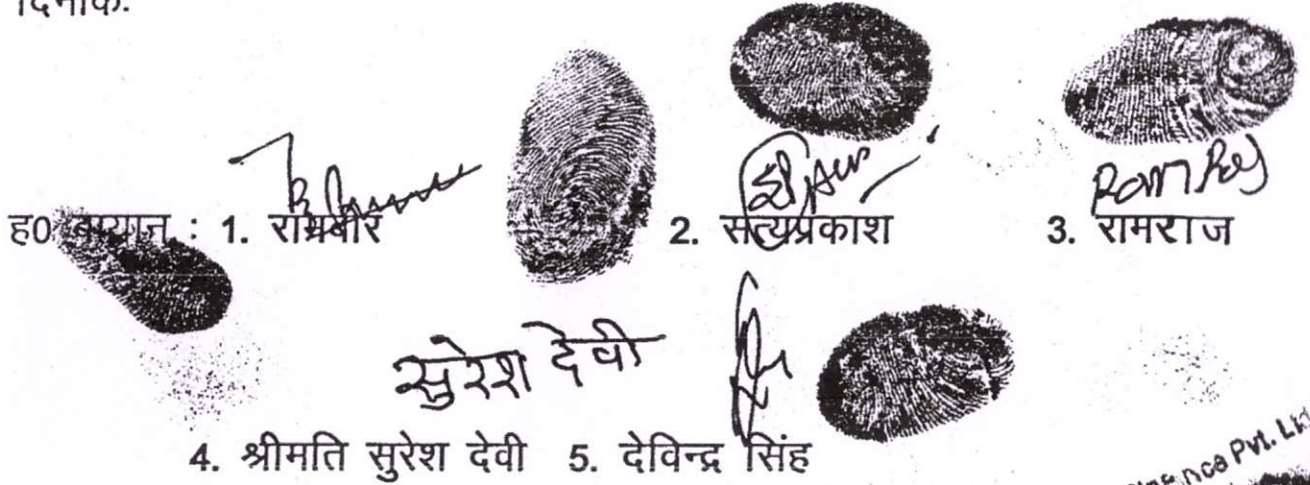 दिनांक:
ह० बायान : 1. रामबीर 2. सत्यप्रकाश 3. रामराज
Ram Raj
सुरेश देवी
4. श्रीमति सुरेश देवी 5. देविन्द्र सिंह
Pvt. Ltd